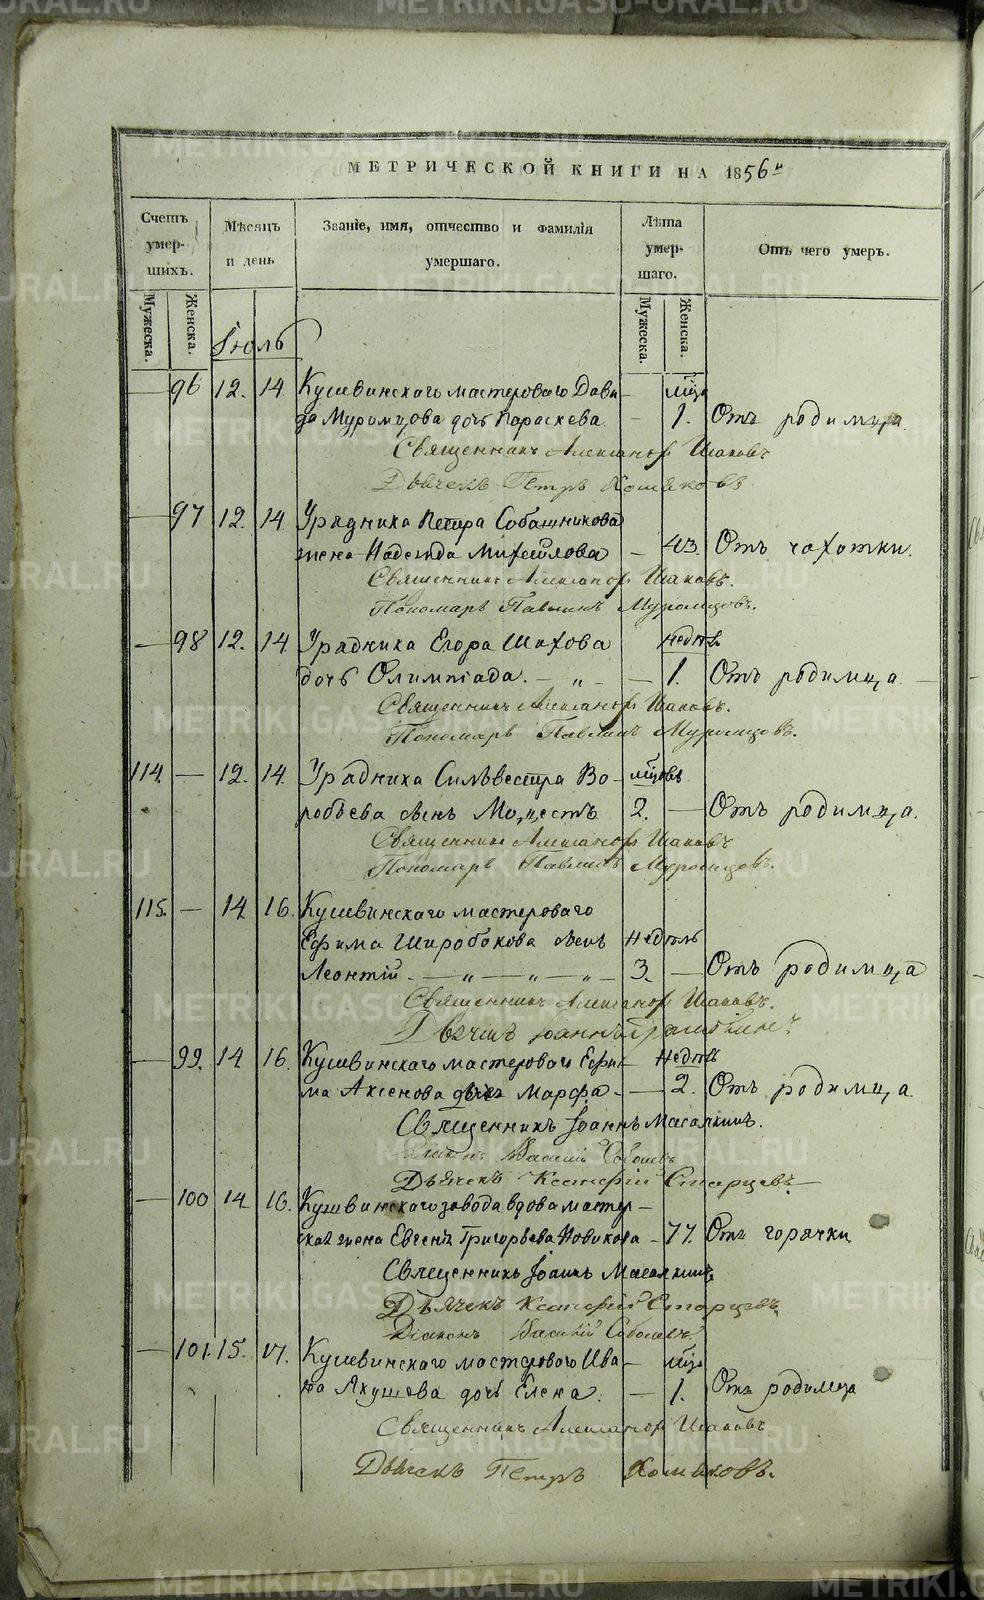 МЕТРИЧЕСКОЙ КНИГИ НА 1856й
Счетъ умер- шихъ.
Мѣсяцъ и день
Званіе, имя, отчество и фамилія умершаго.
Лѣта умер- шаго.
Отъ чего умеръ.
Мужеска. Женска. Мужеска. Женска.
Іюль
— 96 12. 14 Кушвинскаго мастероваго Дави- мца
да Муромцова дочь Параскева. — 1. Отъ родимца.
Священникъ Александръ Шаховъ
Дьячекъ Петръ Хомяковъ
— 97 12. 14 Урядника Петра Собашникова
жена Надежда Михайлова — 43. Отъ чахотки.
Священникъ Александръ Шаховъ.
Пономарь Павлинъ Муромцовъ.
— 98 12. 14 Урядника Егора Шахова недѣль
дочь Олимпіада. — „ — — 1. Отъ родимца —
Священникъ Александръ Шаховъ.
Пономарь Павлинъ Муромцовъ.
114 — 12. 14. Урадника Сильвестра Во- мцовъ
робьева сынъ Модестъ 2. — Отъ родимца.
Священникъ Александръ Шаховъ
Пономарь Павлинъ Муромцовъ.
115. — 14 16. Кушвинскаго мастероваго
Ефима Широбокова сынъ недѣль
Леонтій. — „ — „ — „ — 3. — Отъ родимца
Священникъ Александръ Шаховъ.
Дьячекъ Іоаннъ
— 99. 14 16. Кушвинскаго мастероваго Ефи- недѣль
ма Аксенова дочь Марфа. — — 2. Отъ родимца.
Священникъ Іоаннъ Масалкинъ.
Діаконъ Василій Соболевъ
Дьячекъ Ксенофій Старцевъ.
— 100 14 16. Кушвинскаго завода вдова мастер-
ская жена Евгенія Григорьева Новикова — 77. Отъ горячки
Священникъ Іоаннъ Масалкинъ
Дьячекъ Ксенофій Старцевъ.
Діаконъ Василій Соболевъ.
— 101. 15. 17. Кушвинскаго мастероваго Ива- мца
на Акушева дочь Елена. — 1. Отъ родимца
Священникъ Александръ Шаховъ
Дьячекъ Петръ Хомяковъ.
METRIKI.GASO-URAL.RU